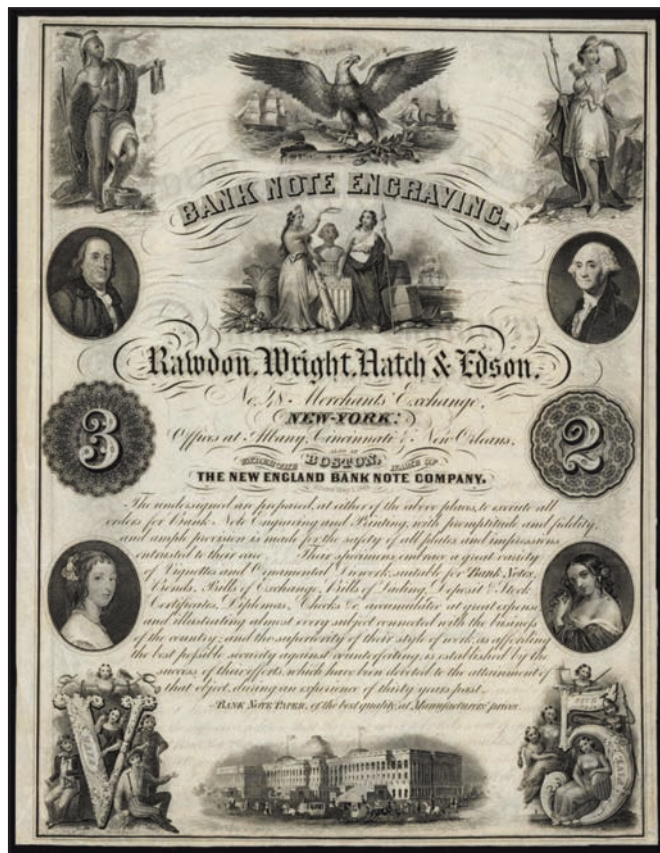 BANK NOTE ENGRAVING.
Rawdon, Wright, Hatch & Edson.
No. 48 Merchants' Exchange,
NEW-YORK.
Offices at Albany, Cincinnati & New Orleans,
ALSO AT
UNDER THE BOSTON, NAME OF
THE NEW ENGLAND BANK NOTE COMPANY.
3
2
The undersigned are prepared, at either of the above places, to execute all
orders for Bank Note Engraving and Printing, with promptitude and fidelity,
and ample provision is made for the safety of all plates and impressions
entrusted to their care. Their specimens embrace a great variety
of Vignettes and Ornamental Diework, suitable for Bank Notes,
Bonds, Bills of Exchange, Bills of Lading, Deposit & Stock
Certificates, Diplomas, Checks &c. accumulated at great expense
and illustrating almost every subject connected with the business
of the country; and the superiority of their style of work, as affording
the best possible security against counterfeiting, is established by the
success of their efforts, which have been devoted to the attainment of
that object, during an experience of thirty years past.
BANK NOTE PAPER, of the best quality, at Manufacturers' prices.
V
5